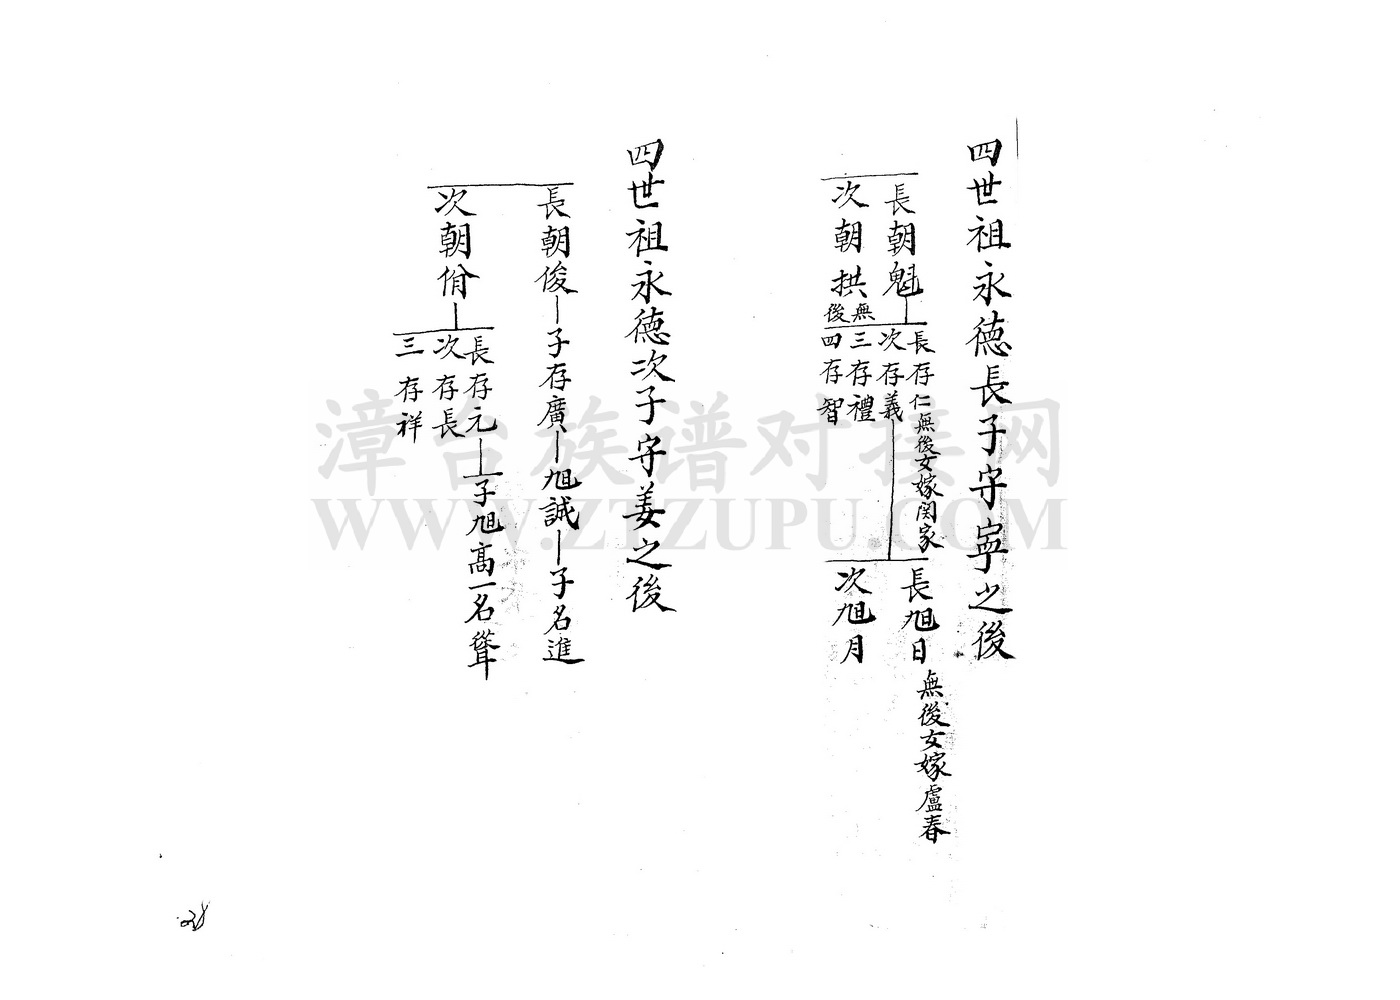 四世祖永德長子守寧之後
長朝魁
次朝拱無後
長存仁無後女嫁関家
次存義
三存禮
四存智
長旭日無後女嫁盧春
次旭月
四世祖永德次子守姜之後
長朝俊
子存廣
旭誠
子名進
次朝脩
長存元
次存長
三存祥
子旭高一名聳
28
漳台族谱对接网
WWW.ZTZUPU.COM